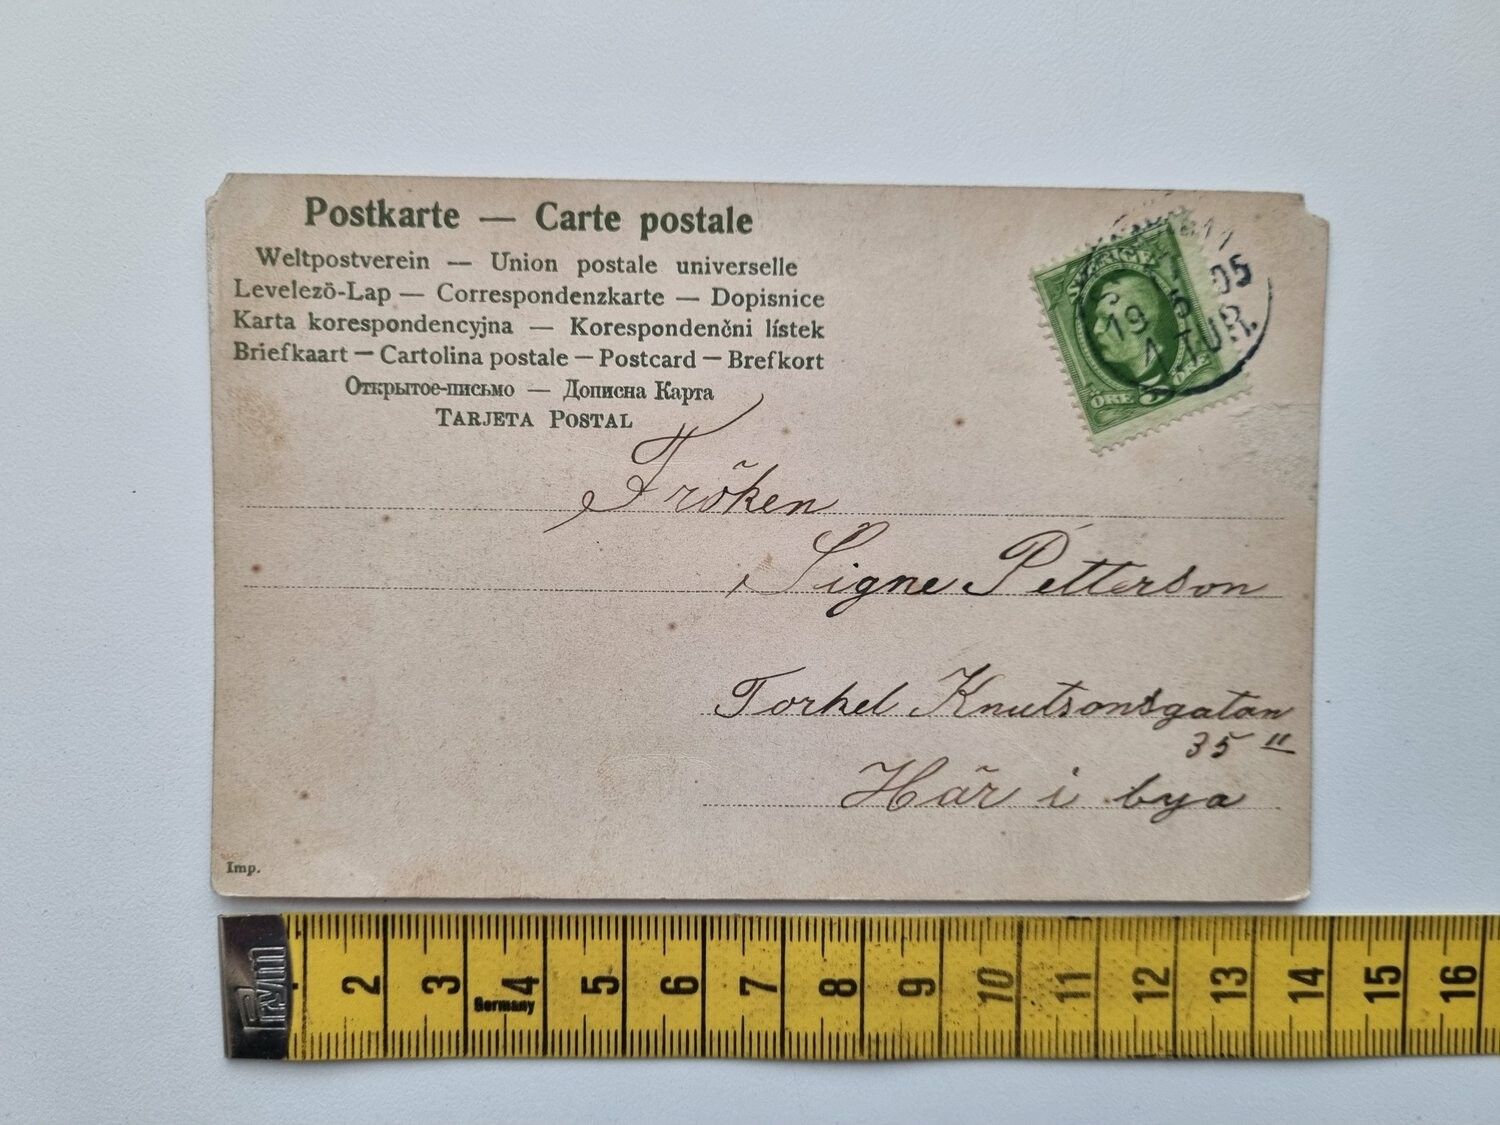 Postkarte — Carte postale
Weltpostverein — Union postale universelle
Levelező-Lap — Correspondenzkarte — Dopisnice
Karta korespondencyjna — Korespondenčni lístek
Briefkaart — Cartolina postale — Postcard — Brefkort
Открытое-письмо — Дописна Карта
TARJETA POSTAL
11
05
19 5
1 TUR.
ÖRE 5 ÖRE
Fröken
Signe Petterson
Torkel Knutsonsgatan
35 II
Här i bya
Imp.
Prym
2 3 4 5 6 7 8 9 10 11 12 13 14 15 16
Germany